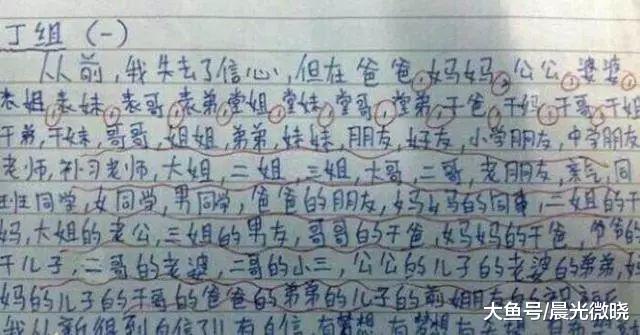 丁组（一）
从前,我失去了信心,但在爸爸,妈妈,公公,婆婆,
表姐,表妹,表哥,表弟,堂姐,堂妹,堂哥,堂弟,干爸,干妈,干哥,干姐
干弟,干妹,哥哥,姐姐,弟弟,妹妹,朋友,好友,小学朋友,中学朋友
老师,补习老师,大姐,二姐,三姐,大哥,二哥,老朋友,亲气,同
班同学,女同学,男同学,爸爸的朋友,妈妈的同事,二姐的干
妈,大姐的老公,三姐的男友,哥哥的干爸,妈妈的干爸,爷爷的
干儿子,二哥的老婆,二哥的小三,公公的儿子的老婆的弟弟,
妈的儿子的干哥的爸爸的弟弟的
大鱼号/晨光微晓